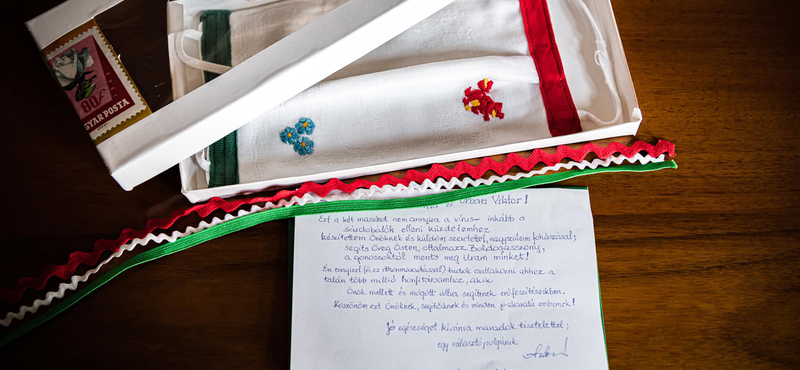 80f
GYAR POSTA
és Orbán Viktor!
Ezt a két maszkot nem annyira a vírus- inkább a
sárdobálók elleni küzdelemhez
készítettem Önöknek és küldöm szeretetel, nagyszüleim fohászával;
segíts Öreg Isten, oltalmazz Boldogasszony,
a gonoszoktól ments meg Uram minket!
Én ennyivel (és az itthonmaradással) tudok csatlakozni ahhoz a
talán több millió honfitársamhoz, akik
Önök mellett és mögött állva segítenek erőfeszítéseikben.
Köszönöm ezt Önöknek, segítőiknek és minden jóakaratú embernek!
Jó egészséget kívánva maradok tisztelettel;
egy választópolgáruk